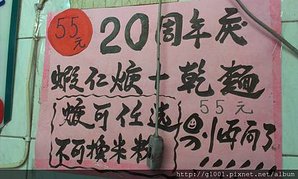 55元
20周年慶
蝦仁焿一乾麵
焿可任選
不可換米粉
55元
別再問了
http://g1001.pixnet.net/album